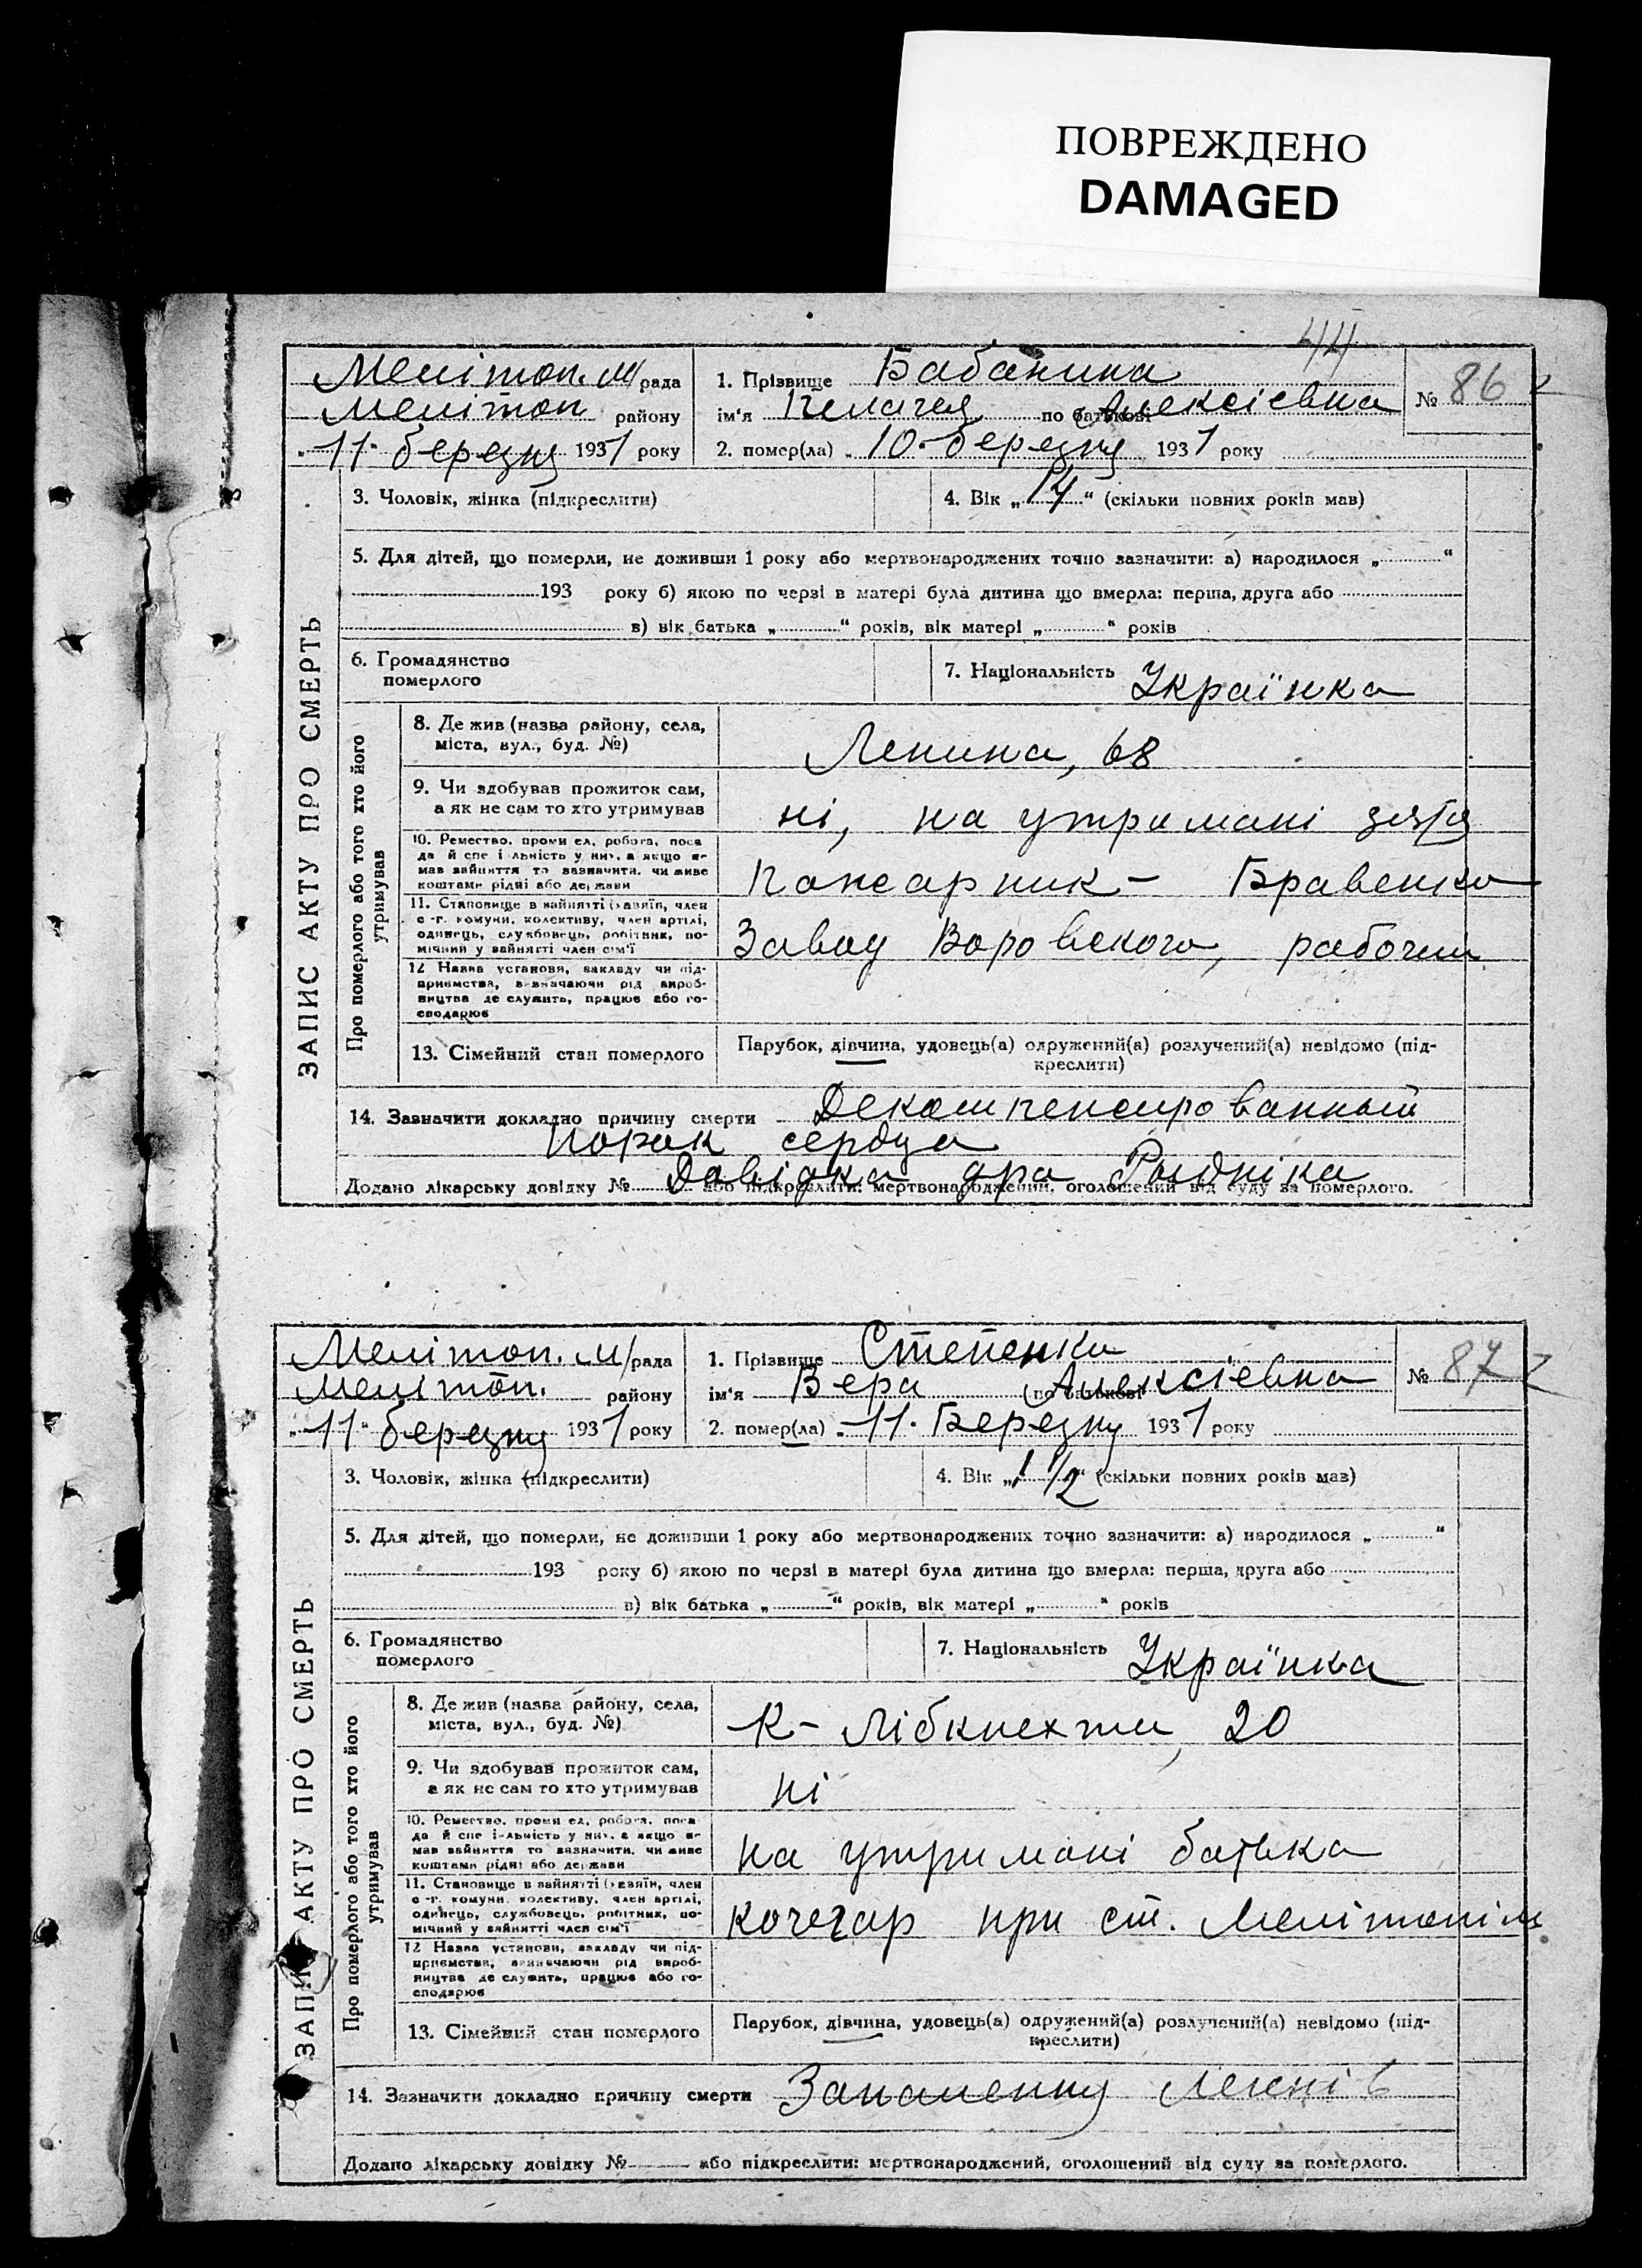 ПОВРЕЖДЕНО
DAMAGED
44
Мелітоп. м/рада
1. Прізвище Бабанина
№ 86
Мелітоп району
ім'я Пелагея по батькові Алексієвна
"11" березня 1931 року
2. помер(ла) "10" березня 1931 року
3. Чоловік, жінка (підкреслити)
4. Вік „14" (скільки повних років мав)
5. Для дітей, що померли, не доживши 1 року або мертвонароджених точно зазначити: а) народилося „ "
193 року б) якою по черзі в матері була дитина що вмерла: перша, друга або
в) вік батька „ " років, вік матері „ " років
6. Громадянство
померлого
7. Національність Українка
ЗАПИС АКТУ ПРО СМЕРТЬ
Про померлого або того хто його
утримував
8. Де жив (назва району, села,
міста, вул., буд. №)
Ленина, 68
9. Чи здобував прожиток сам,
а як не сам то хто утримував
ні, на утримані зятя
10. Ремество, проми ел, робота, поса
да й спе і льність у них, а якщо не
мав зайняття то зазначити, чи живе
коштами рідні або держави
Пожарник - Бравенко
11. Становище в зайнятті (хазяїн, член
с.-г. комуни, колективу, член артілі,
одинець, службовець, робітник, по-
мічний у зайнятті член сім'ї
Завод Воровского, рабочий
12 Назва установи, закладу чи під-
приємства, визначаючи рід вироб-
ництва де служить, працює або го-
сподарює
13. Сімейний стан померлого
Парубок, дівчина, удовець(а) одружений(а) розлучений(а) невідомо (під-
креслити)
14. Зазначити докладно причину смерти Декомпенсированный
порок сердца
Довідка дра
Додано лікарську довідку № або підкреслити: мертвонароджений, оголошений від суду за померлого.
Мелітоп. м/рада
1. Прізвище Степенко
№ 87
Мелітоп. району
ім'я Вера по батькові Алексієвна
"11" березня 1931 року
2. помер(ла) "11" Березня 1931 року
3. Чоловік, жінка (підкреслити)
4. Вік „1 1/2" (скільки повних років мав)
5. Для дітей, що померли, не доживши 1 року або мертвонароджених точно зазначити: а) народилося „ "
193 року б) якою по черзі в матері була дитина що вмерла: перша, друга або
в) вік батька „ " років, вік матері „ " років
6. Громадянство
померлого
7. Національність Українка
ЗАПИС АКТУ ПРО СМЕРТЬ
Про померлого або того хто його
утримував
8. Де жив (назва району, села,
міста, вул., буд. №)
К- Лібкнехта, 20
9. Чи здобував прожиток сам,
а як не сам то хто утримував
ні
10. Ремество, проми ел, робота, поса
да й спе і-льність у них, а якщо не
мав зайняття то зазначити, чи живе
коштами рідні або держави
на утримані батька
11. Становище в зайнятті (хазяїн, член
с.-г. комуни, колективу, член артілі,
одинець, службовець, робітник, по-
мічний у зайнятті член сім'ї
кочегар при ст. Мелітопіль
12 Назва установи, закладу чи під-
приємства, визначаючи рід вироб-
ництва де служить, працює або го-
сподарює
13. Сімейний стан померлого
Парубок, дівчина, удовець(а) одружений(а) розлучений(а) невідомо (під-
креслити)
14. Зазначити докладно причину смерти Запалення легенів
Додано лікарську довідку № або підкреслити: мертвонароджений, оголошений від суду за померлого.